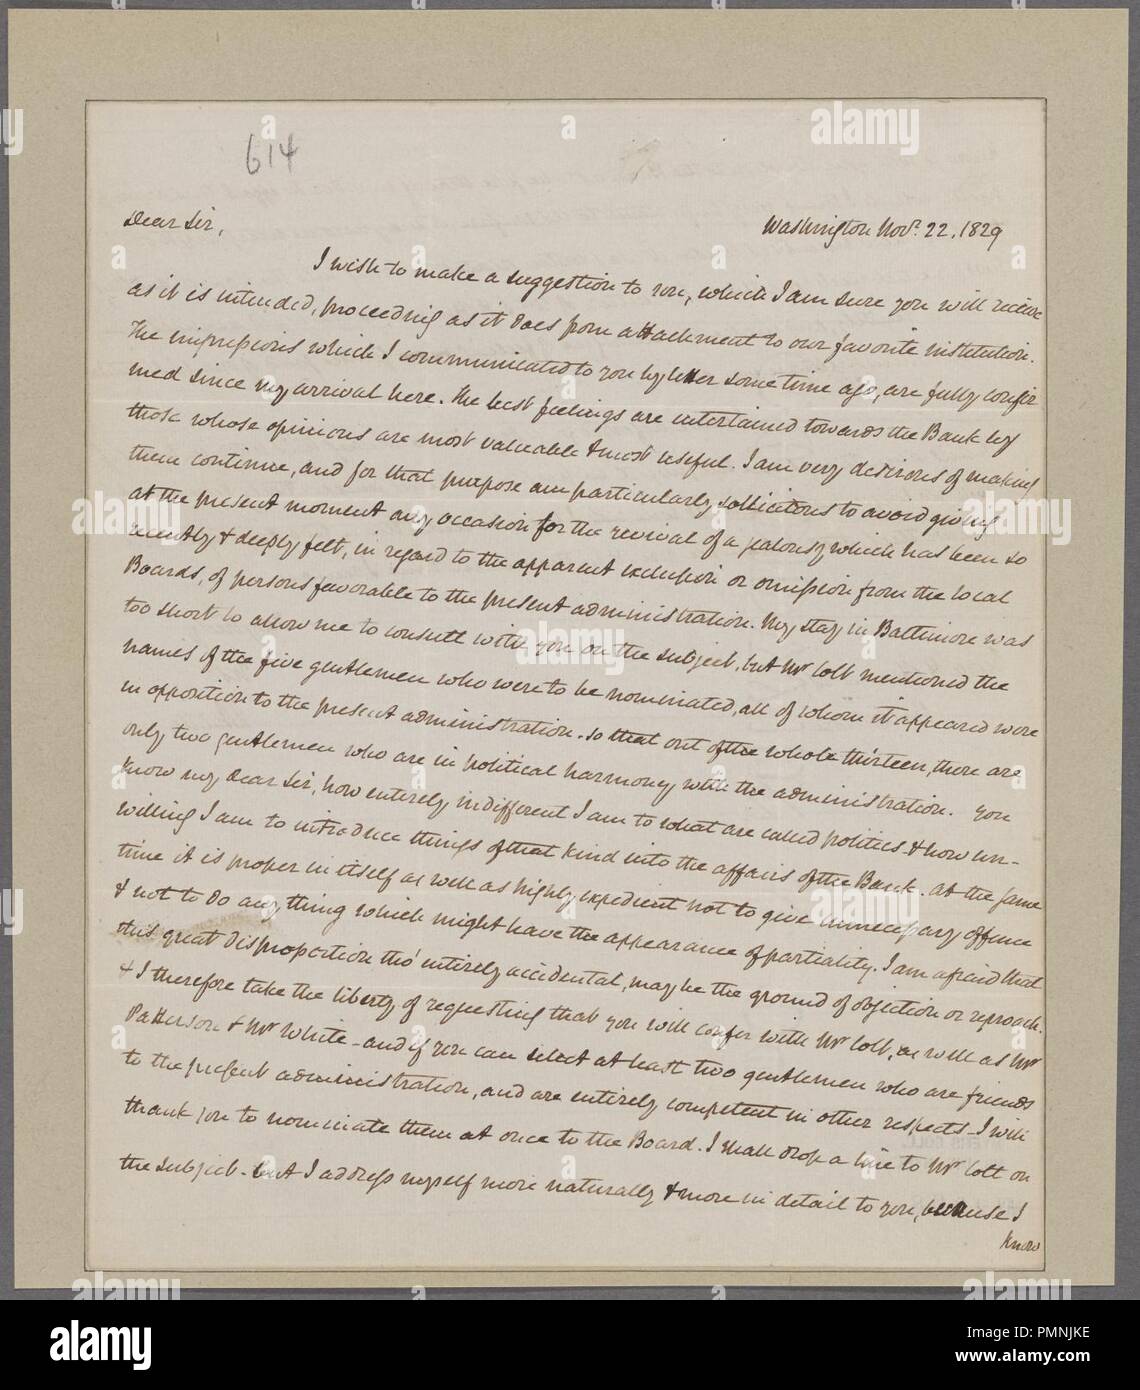 614
Dear Sir,
Washington Nov.r 22. 1829
I wish to make a suggestion to you, which I am sure you will receive
as it is intended, proceeding as it does from attachment to our favorite institution.
The impressions which I communicated to you by letter some time ago, are fully confir
med since my arrival here. The best feelings are entertained towards the Bank by
those whose opinions are most valuable & most useful. I am very desirous of making
them continue, and for that purpose am particularly sollicitous to avoid giving
at the present moment any occasion for the revival of a jealousy which has been so
recently & deeply felt, in regard to the apparent exclusion or omission from the local
Boards, of persons favorable to the present administration. My stay in Baltimore was
too short to allow me to consult with you on the subject, but Mr Colt mentioned the
names of the five gentlemen who were to be nominated, all of whom it appeared were
in opposition to the present administration. So that out of the whole thirteen, there are
only two gentlemen who are in political harmony with the administration. You
know my dear Sir, how entirely indifferent I am to what are called politics & how un-
willing I am to introduce things of that kind into the affairs of the Bank. At the same
time it is proper in itself as well as highly expedient not to give unnecessary offence
& not to do any thing which might have the appearance of partiality. I am afraid that
this great disproportion tho' entirely accidental, may be the ground of objection or reproach.
& I therefore take the liberty of requesting that you will confer with Mr Colt, as well as Mr
Patterson & Mr White - and if you can select at least two gentlemen who are friends
to the present administration, and are entirely competent in other respects I will
thank you to nominate them at once to the Board. I shall drop a line to Mr Colt on
the subject - but I address myself more naturally & more in detail to you, because I
know
alamy
Image ID: PMNJKE
www.alamy.com